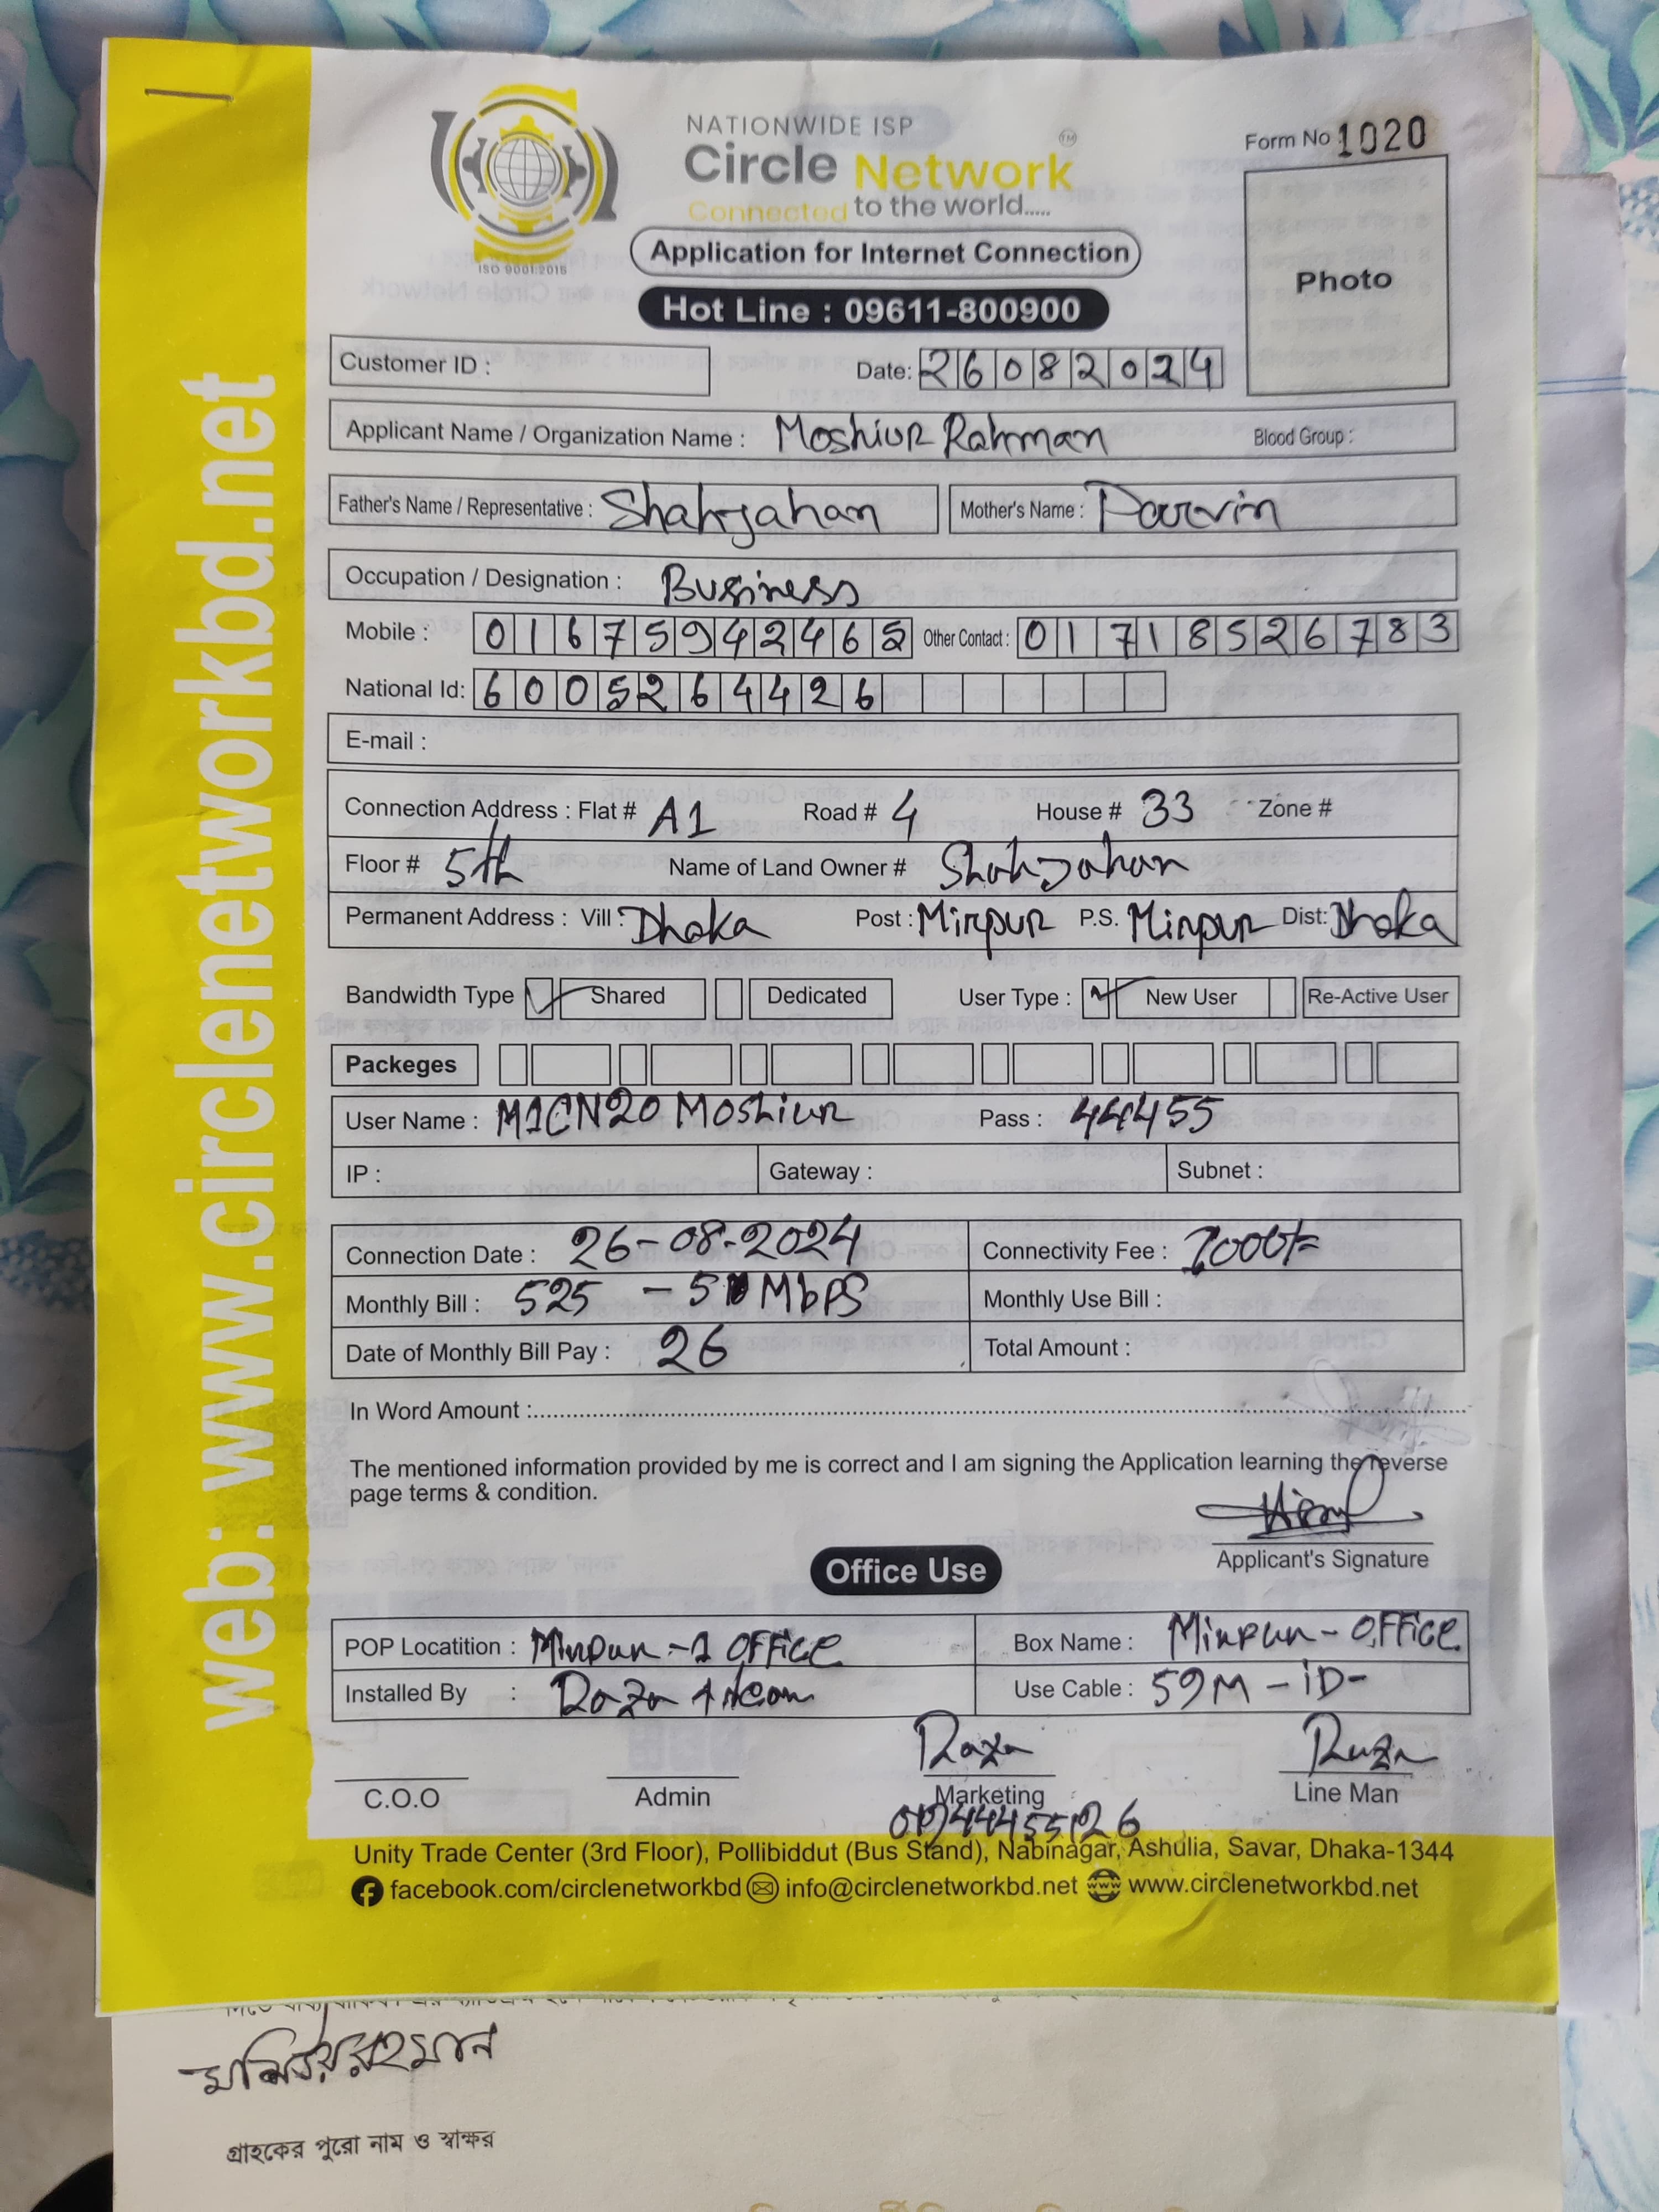 NATIONWIDE ISP
Circle Network TM
Connected to the world.....
ISO 9001:2015
Form No 1020
Photo
Application for Internet Connection
Hot Line : 09611-800900
web: www.circlenetworkbd.net
Customer ID : Date: 26082024
Applicant Name / Organization Name : Moshiur Rahman Blood Group :
Father's Name / Representative : Shahjahan Mother's Name : Parvin
Occupation / Designation : Business
Mobile : 01675942465 Other Contact : 01718526783
National Id: 6005264426
E-mail :
Connection Address : Flat # A1 Road # 4 House # 33 Zone #
Floor # 5th Name of Land Owner # Shahjahan
Permanent Address : Vill : Dhaka Post : Mirpur P.S. Mirpur Dist: Dhaka
Bandwidth Type Shared Dedicated User Type : New User Re-Active User
Packeges
User Name : M1CN20 Moshiur Pass : 44455
IP : Gateway : Subnet :
Connection Date : 26-08-2024 Connectivity Fee : 1000/=
Monthly Bill : 525 - Mbps Monthly Use Bill :
Date of Monthly Bill Pay : 26 Total Amount :
In Word Amount :
The mentioned information provided by me is correct and I am signing the Application learning the reverse
page terms & condition.
Applicant's Signature
Office Use
POP Locatition : Mirpur-1 OFFice Box Name : Mirpur-OFFice
Installed By : Raza + team Use Cable : 59M - iD-
Raza Raza
C.O.O Admin Marketing Line Man
Unity Trade Center (3rd Floor), Pollibiddut (Bus Stand), Nabinagar, Ashulia, Savar, Dhaka-1344
facebook.com/circlenetworkbd info@circlenetworkbd.net www.circlenetworkbd.net
মশিউর রহমান
গ্রাহকের পুরো নাম ও স্বাক্ষর